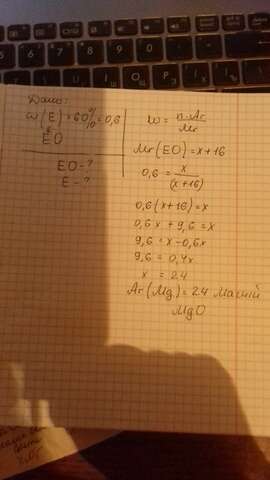 Дано:
w(E) = 60% = 0,6
EO
EO-?
E-?
w = n·Ar / Mr
Mr(EO) = x+16
0,6 = x / (x+16)
0,6(x+16)=x
0,6x + 9,6 = x
9,6 = x-0,6x
9,6 = 0,4x
x = 24
Ar(Mg) = 24 Магній
MgO